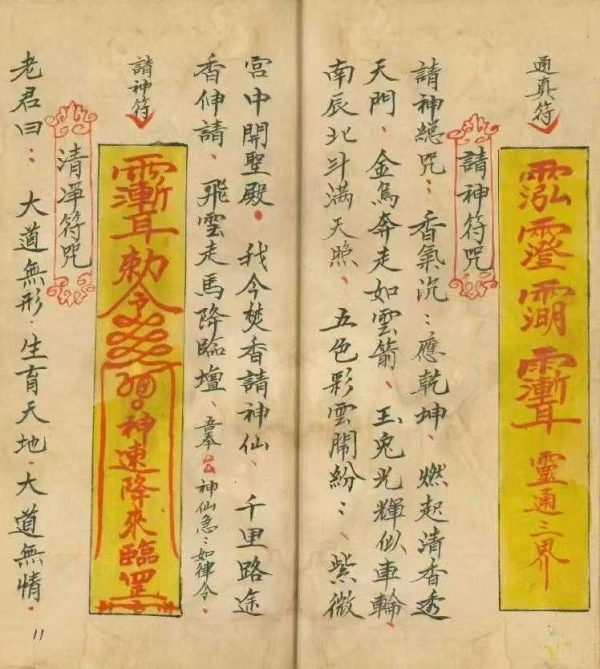 通真符
靈通三界
請神符咒
請神總咒：香氣沉：應乾坤、燃起清香透
天門、金烏奔走如雲箭、玉兔光輝似車輪、
南辰北斗滿天照、五色彩雲鬧紛：、紫微
宮中開聖殿。我今焚香請神仙、千里路途
香伸請、飛雲走馬降臨壇、奉 神仙急：如律令、
請神符
勅令 神速降來臨罡
清淨符咒
老君曰：大道無形．生育天地．大道無情．
11